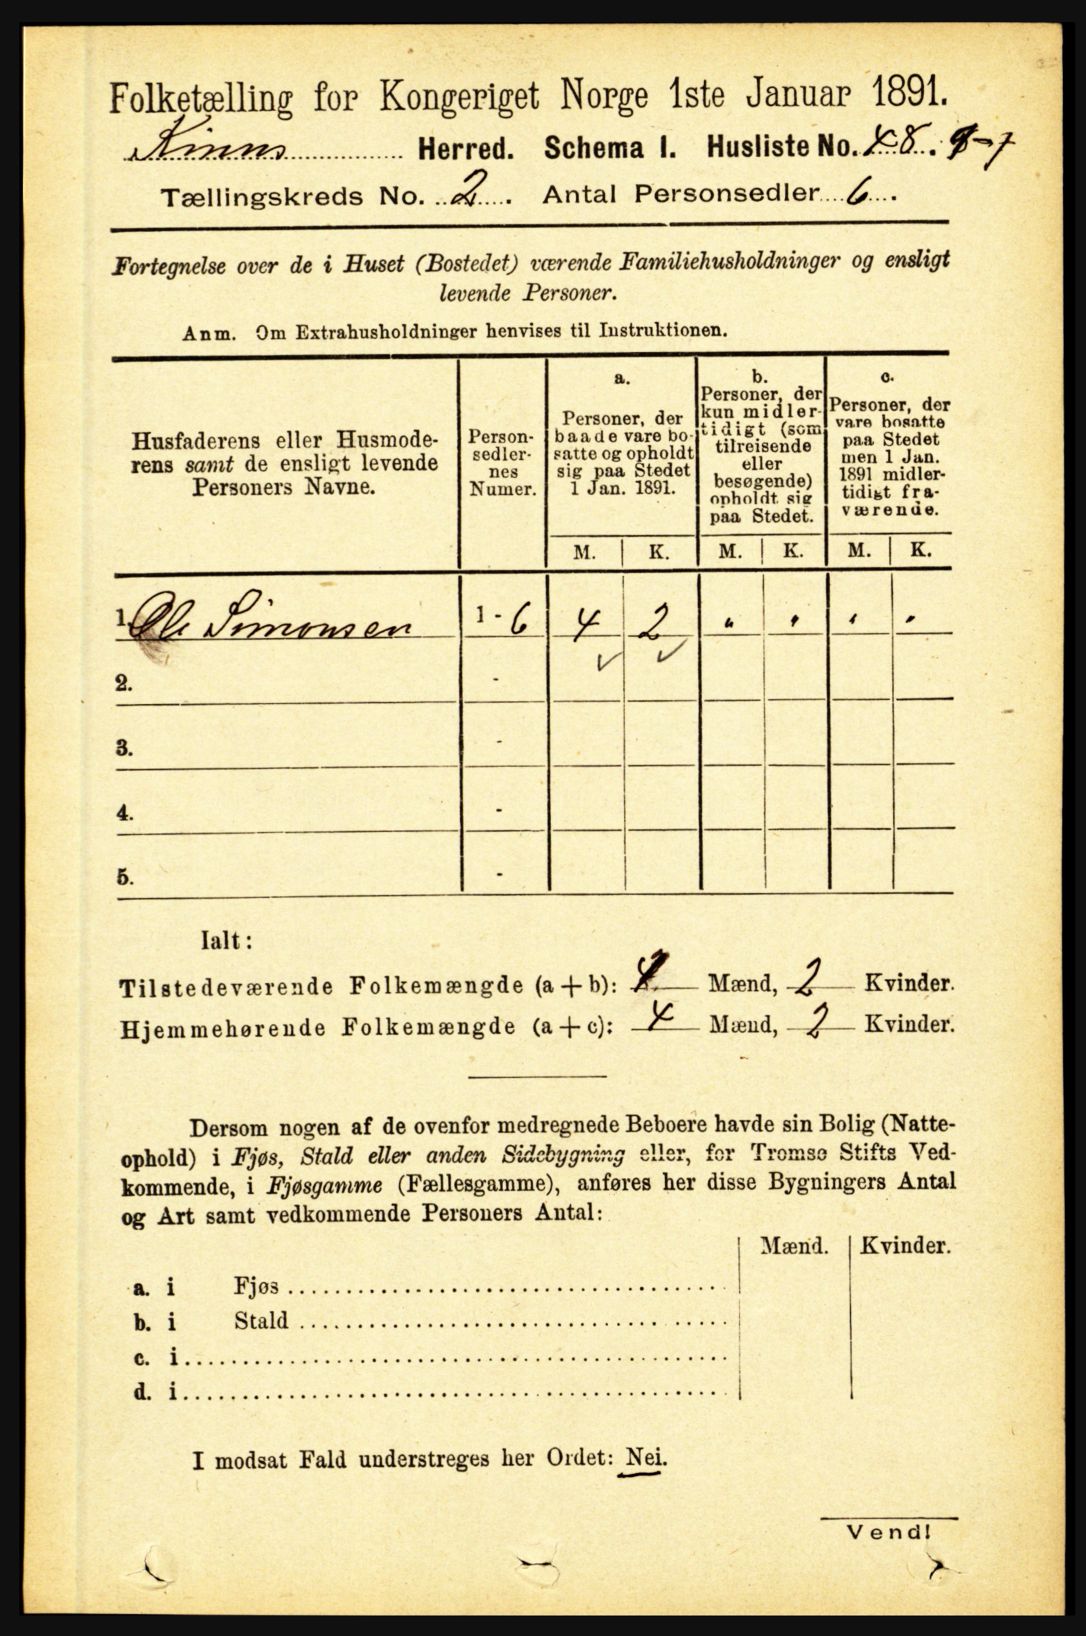 Folketælling for Kongeriget Norge 1ste Januar 1891.
Kinns Herred. Schema I. Husliste No. 48.
Tællingskreds No. 2. Antal Personsedler 6.
Fortegnelse over de i Huset (Bostedet) værende Familiehusholdninger og ensligt
levende Personer.
Anm. Om Extrahusholdninger henvises til Instruktionen.
Husfaderens eller Husmode-
rens samt de ensligt levende
Personers Navne.
Person-
sedler-
nes
Numer.
a.
Personer, der
baade vare bo-
satte og opholdt
sig paa Stedet
1 Jan. 1891.
b.
Personer, der
kun midler-
tidigt (som
tilreisende
eller
besøgende)
opholdt sig
paa Stedet.
c.
Personer, der
vare bosatte
paa Stedet
men 1 Jan.
1891 midler-
tidigt fra-
værende.
M. K. M. K. M. K.
1. Ole Simonsen 1 - 6 4 2 " " " "
2. -
3. -
4. -
5. -
Ialt:
Tilstedeværende Folkemængde (a + b): 4 Mænd, 2 Kvinder.
Hjemmehørende Folkemængde (a + c): 4 Mænd, 2 Kvinder.
Dersom nogen af de ovenfor medregnede Beboere havde sin Bolig (Natte-
ophold) i Fjøs, Stald eller anden Sidebygning eller, for Tromsø Stifts Ved-
kommende, i Fjøsgamme (Fællesgamme), anføres her disse Bygningers Antal
og Art samt vedkommende Personers Antal:
Mænd. Kvinder.
a. i Fjøs
b. i Stald
c. i
d. i
I modsat Fald understreges her Ordet: Nei.
Vend!